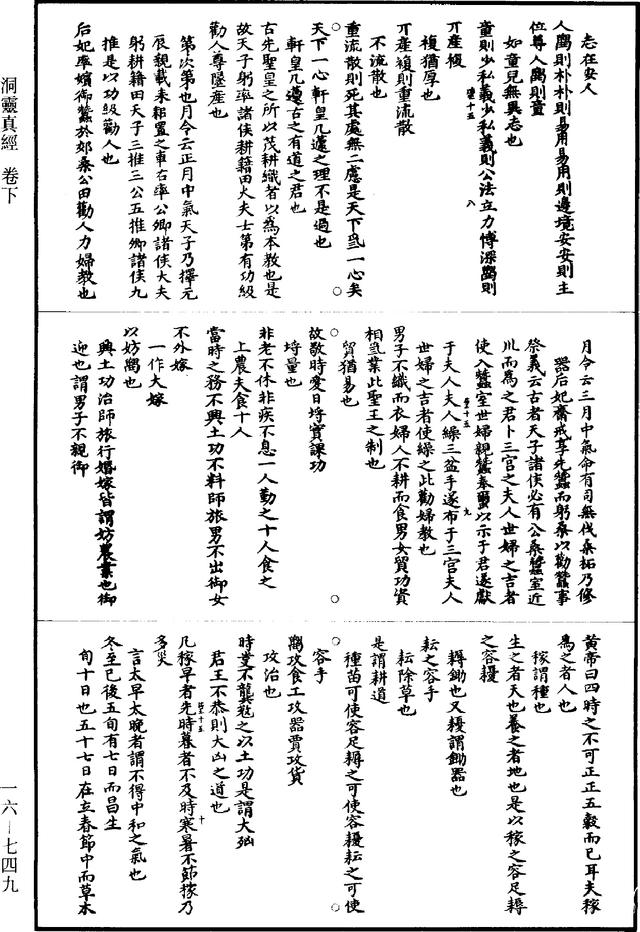 洞靈真經　卷下
一六—七四九
志在安人
人農則朴朴則易用易用則邊境安安則主
位尊人農則童
如童兒無異志也
童則少私義少私義則公法立力博深農則
丌產複
複猶厚也
丌產複則重流散
不流散也
重流散則死其處無二慮是天下爲一心矣
天下一心軒皇几蘧之理不是過也
軒皇几蘧古之有道之君也
古先聖皇之所以茂耕織者以爲本教也是
故天子躬率諸侯耕籍田大夫士第有功級
勸人尊墬產也
第次第也月令云正月中氣天子乃擇元
辰親載耒耜置之車右率公卿諸侯大夫
躬耕籍田天子三推三公五推卿諸侯九
推是以功級勸人也
后妃率嬪御蠶於郊桑公田勸人力婦教也
月令云三月中氣命有司無伐桑柘乃修
器后妃齋戒享先蠶而躬桑以勸蠶事
祭義云古者天子諸侯必有公桑蠶室近
川而爲之君卜三宮之夫人世婦之吉者
使入蠶室世婦親蠶奉繭以示于君遂獻
于夫人夫人繰三盆手遂布于三宮夫人
世婦之吉者使繰之此勸婦教也
男子不織而衣婦人不耕而食男女貿功資
相爲業此聖王之制也
貿猶易也
故敬時愛日埒實課功
埒量也
非老不休非疾不息一人勤之十人食之
上農夫食十人
當時之務不興土功不料師旅男不出御女
不外嫁
一作大嫁
以妨農也
興土功治師旅行婚嫁皆謂妨農業也御
迎也謂男子不親御
黃帝曰四時之不可正正五穀而已耳夫稼
爲之者人也
稼謂種也
生之者天也養之者地也是以稼之容足耨
之容耰
耨鋤也又耰謂鋤器也
耘之容手
耘除草也
是謂耕道
種苗可使容足耨之可使容耰耘之可使
容手
農攻食工攻器賈攻貨
攻治也
時事不龔敓之以土功是謂大凶
君王不恭則大凶之道也
凡稼早者先時暮者不及時寒暑不節稼乃
多災
言太早太晚者謂不得中和之氣也
冬至已後五旬有七日而昌生
旬十日也五十七日在立春節中而草木